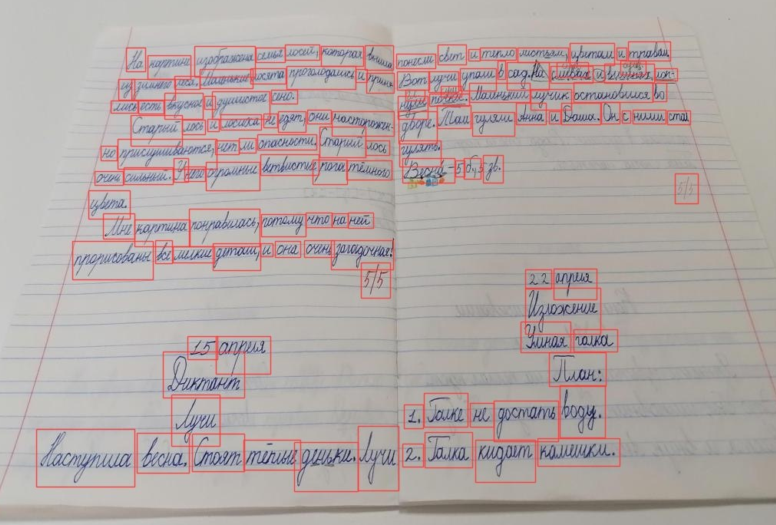 На картине изображена семья лосей, которая вышла
из зимнего леса. Маленькие лосята проголодались и приня-
лись есть вкусное и душистое сено.
Старый лось и лосиха не едят, они насторожен-
но прислушиваются, нет ли опасности. Старый лось
очень сильный. У него огромные ветвистые рога тёмного
цвета.
Мне картина понравилась, потому что на ней
прорисованы все мелкие детали, и она очень загадочная!
5/5
15 апреля
Диктант
Лучи
Наступила весна. Стоят тёплые деньки. Лучи
понесли свет и тепло листьям, цветам и травам.
Вот лучи упали в сад. На и
Маленький лучик остановился во
дворе. Там гуляли Анна и Даша. Он с ними стал
гулять.
Весна - 5 б, 5 зв.
5/5
22 апреля
Изложение
Умная галка
План:
1. Галке не достать воду.
2. Галка кидает камешки.